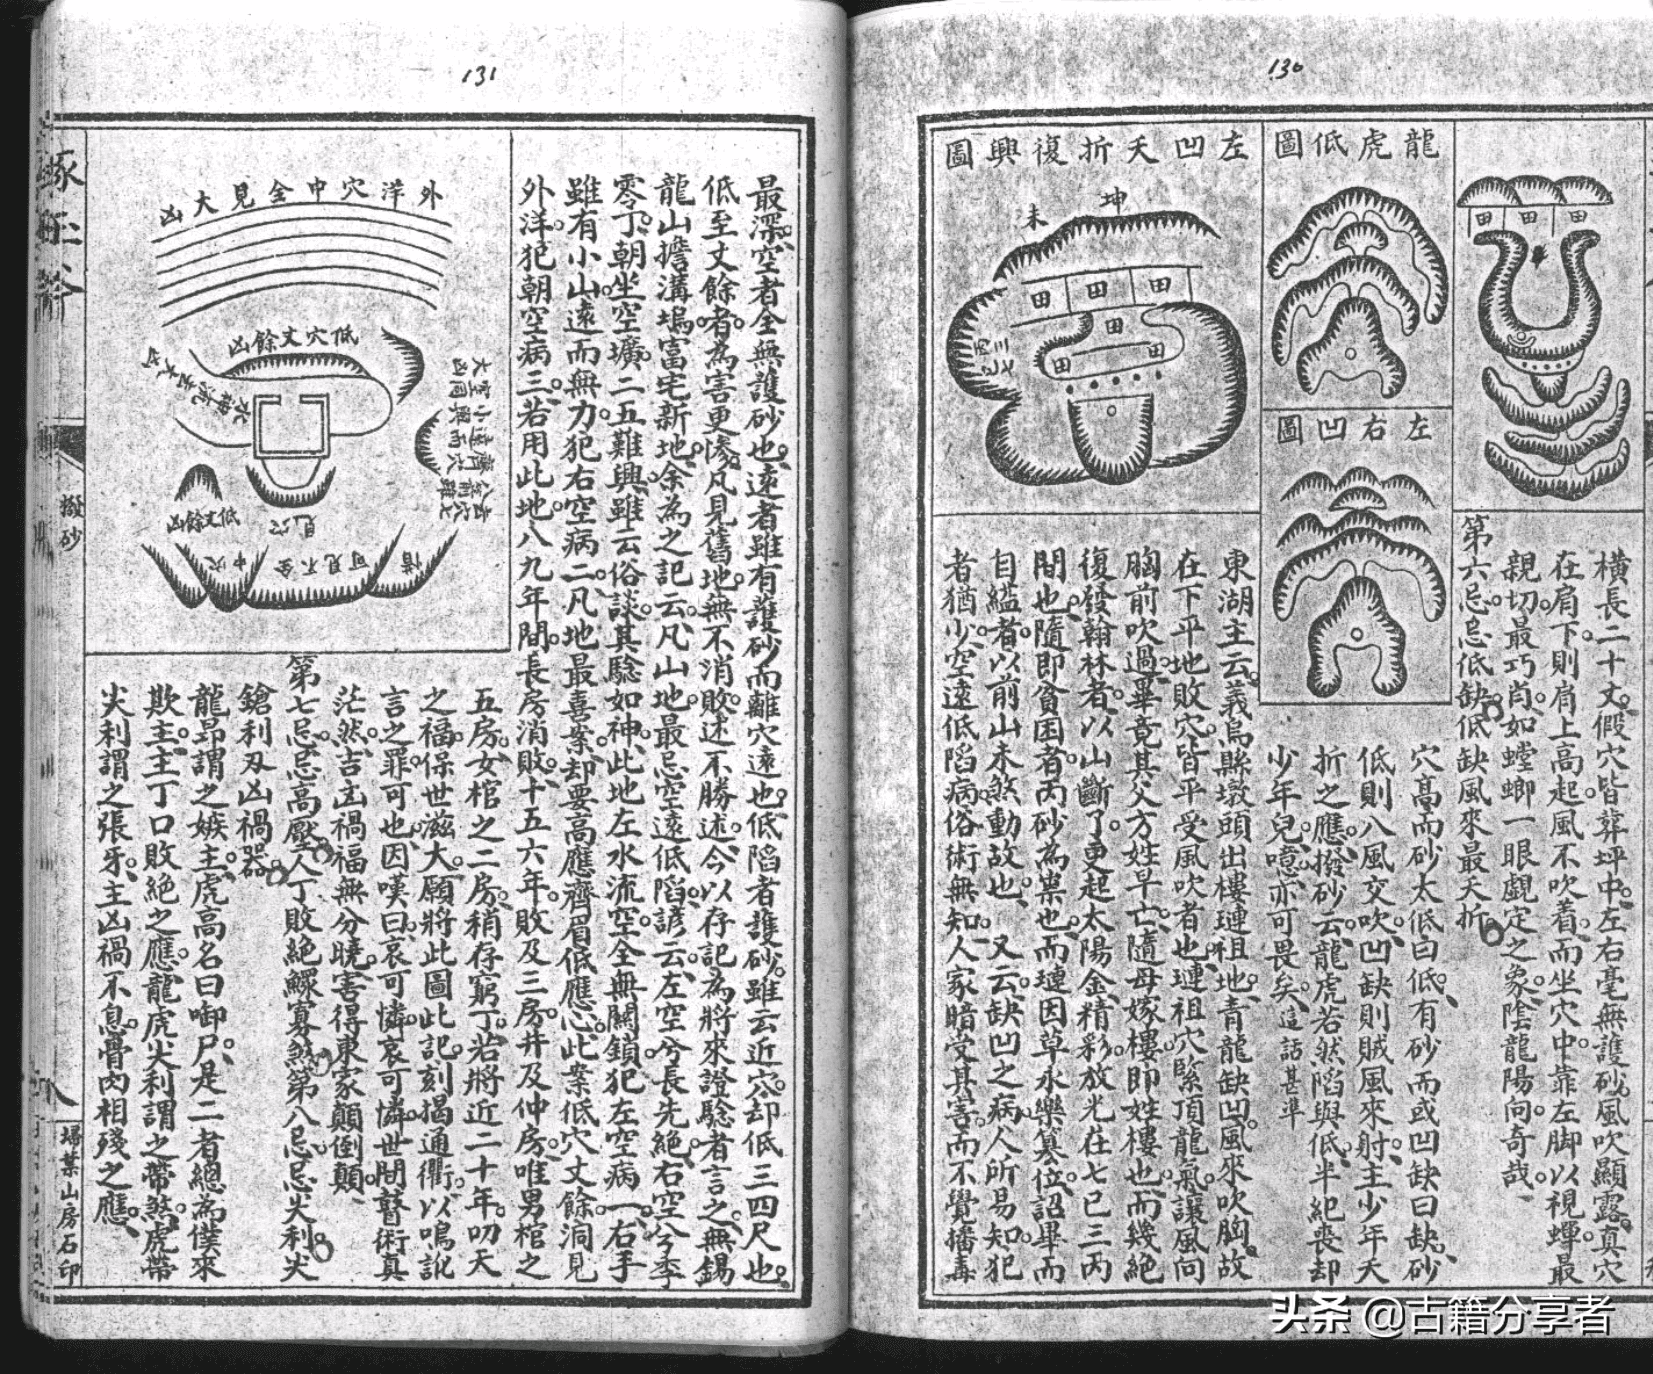 130
龍虎低圖
左凹夭折復興圖
坤
未
田
田
田
田
田
田
田
田
田
左右凹圖
橫長二十丈。假穴皆葬坪中。左右毫無護砂。風吹顯露。真穴
在肩下。則肩上高起。風不吹着。而坐穴中靠左脚。以視蟬最
親切最巧肖。如螳螂一眼覷定之象。陰龍陽向奇哉。
第六忌。忌低缺。低缺風來最夭折。
穴高而砂太低曰低。有砂而或凹缺曰缺。砂
低則八風交吹。凹缺則賊風來射。主少年夭
折之應。撥砂云。龍虎若然陷與低。半紀喪却
少年兒。噫。亦可畏矣。這話甚準
東湖主云。義烏縣墩頭出樓璉祖地。青龍缺凹。風來吹胸。故
在下平地敗穴。皆平受風吹者也。璉祖穴緊頂龍氣。讓風向
胸前吹過。畢竟其父方姓早亡。隨母嫁樓。即姓樓也。而幾絕
復發翰林者。以山斷了。更起太陽金精彩。放光在七巳三丙
間也。隨即貧困者。丙砂為祟也。而璉因草永樂篡位詔畢而
自縊者。以前山未煞動故也。又云。缺凹之病。人所易知。犯
者猶少。空遠低陷病。俗術無知。人家暗受其害。而不覺播毒
131
最深。空者全無護砂也。遠者雖有護砂而離穴遠也。低陷者護砂。雖云近穴。却低三四尺也。
低至丈餘者。為害更慘。凡見舊地。無不消敗。述不勝述。今以存記。為將來證驗者言之。無錫
龍山擔溝塢富宅新地。余為之記云。凡山地。最忌空遠低陷。諺云。左空兮長先絕。右空兮季
零丁。朝坐空壙。二五難興。雖云俗談。其驗如神。此地左水流空。全無關鎖。犯左空病一。右手
雖有小山。遠而無力。犯右空病二。凡地最喜案。却要高應齊眉低應心。此案低穴丈餘。洞見
外洋。犯朝空病三。若用此地。八九年間。長房消敗。十五六年。敗及三房。并及仲房。唯男棺之
五房。女棺之二房。稍存窮丁。若將近二十年。叨天
之福。保世滋大。願將此圖此記。刻揭通衢。以鳴訛
言之罪可也。因嘆曰。哀可憐。哀可憐。世間瞽術真
茫然。吉凶禍福無分曉。害得東家顛倒顛。
第七忌。忌高壓。人丁敗絕鰥寡煞。第八忌。忌尖利。尖
鎗利刄凶禍器。
龍昂謂之嫉主。虎高名曰啣尸。是二者總為僕來
欺主。主丁口敗絕之應。龍虎尖利謂之帶煞。虎帶
尖利謂之張牙。主凶禍不息。骨肉相殘之應。
外洋穴中全見大凶
低穴丈餘凶
低丈餘凶
琢玉斧
撥砂
八
埽葉山房石印
头条 @古籍分享者